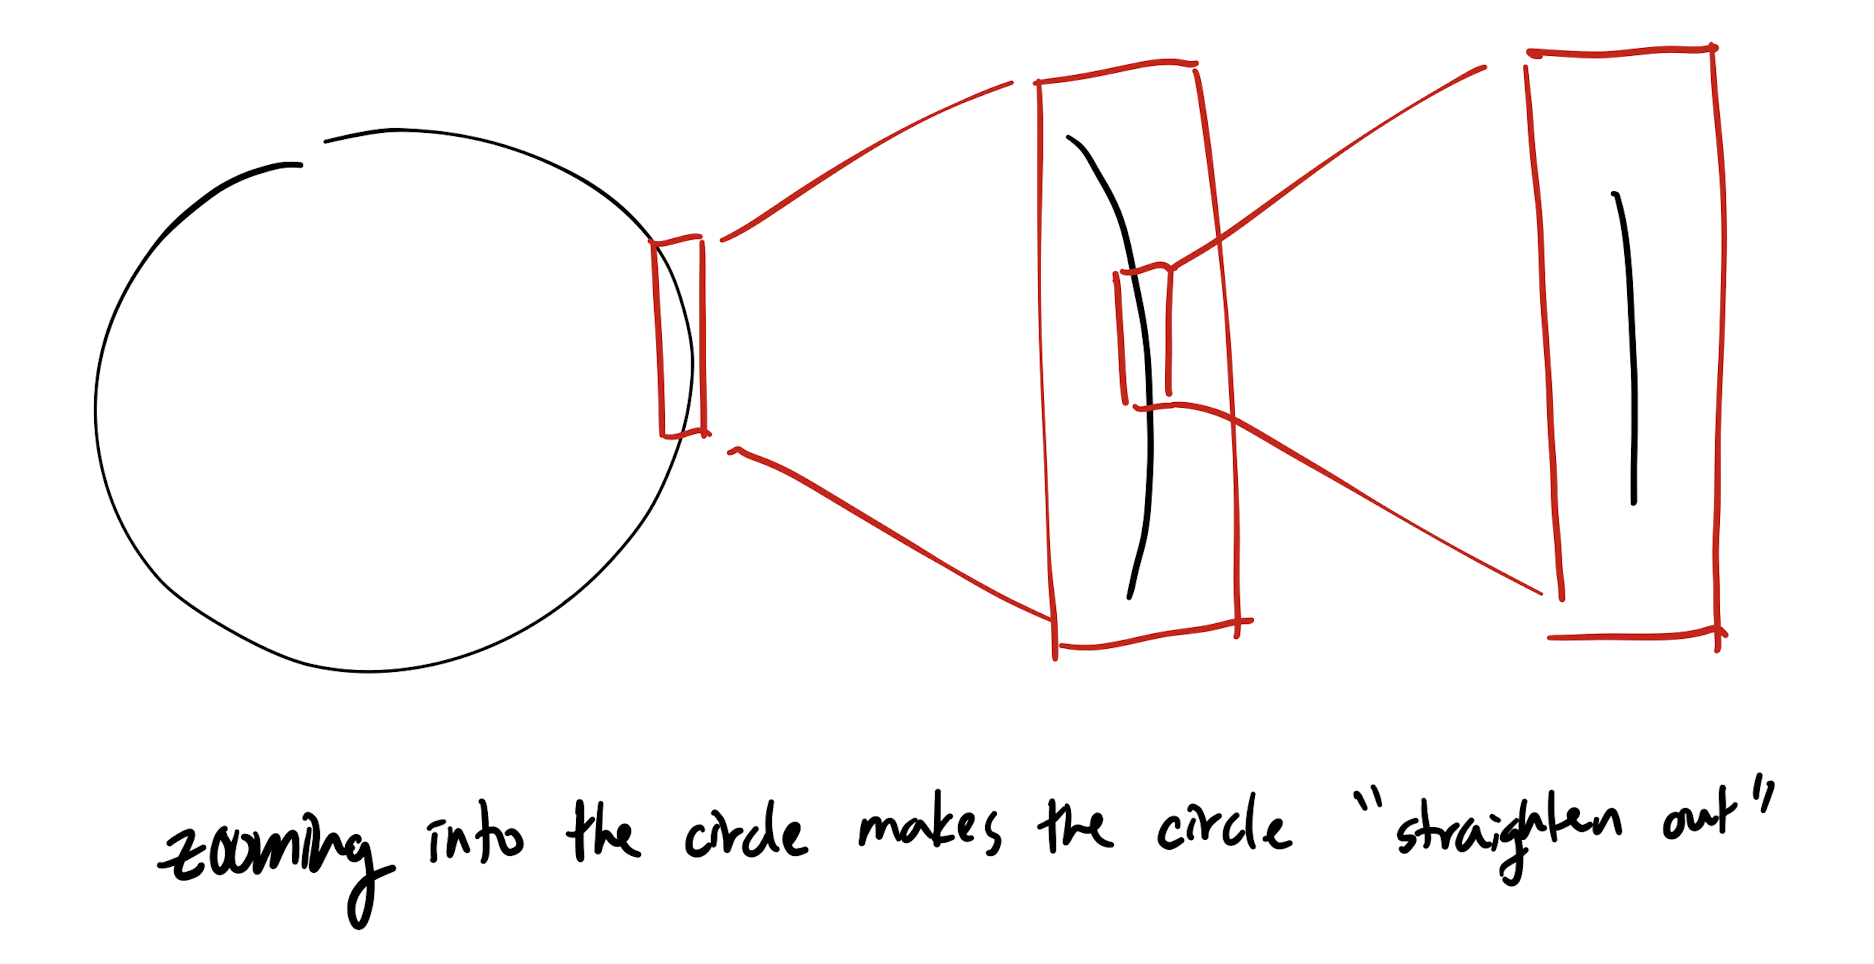 zooming into the circle makes the circle "straighten out"